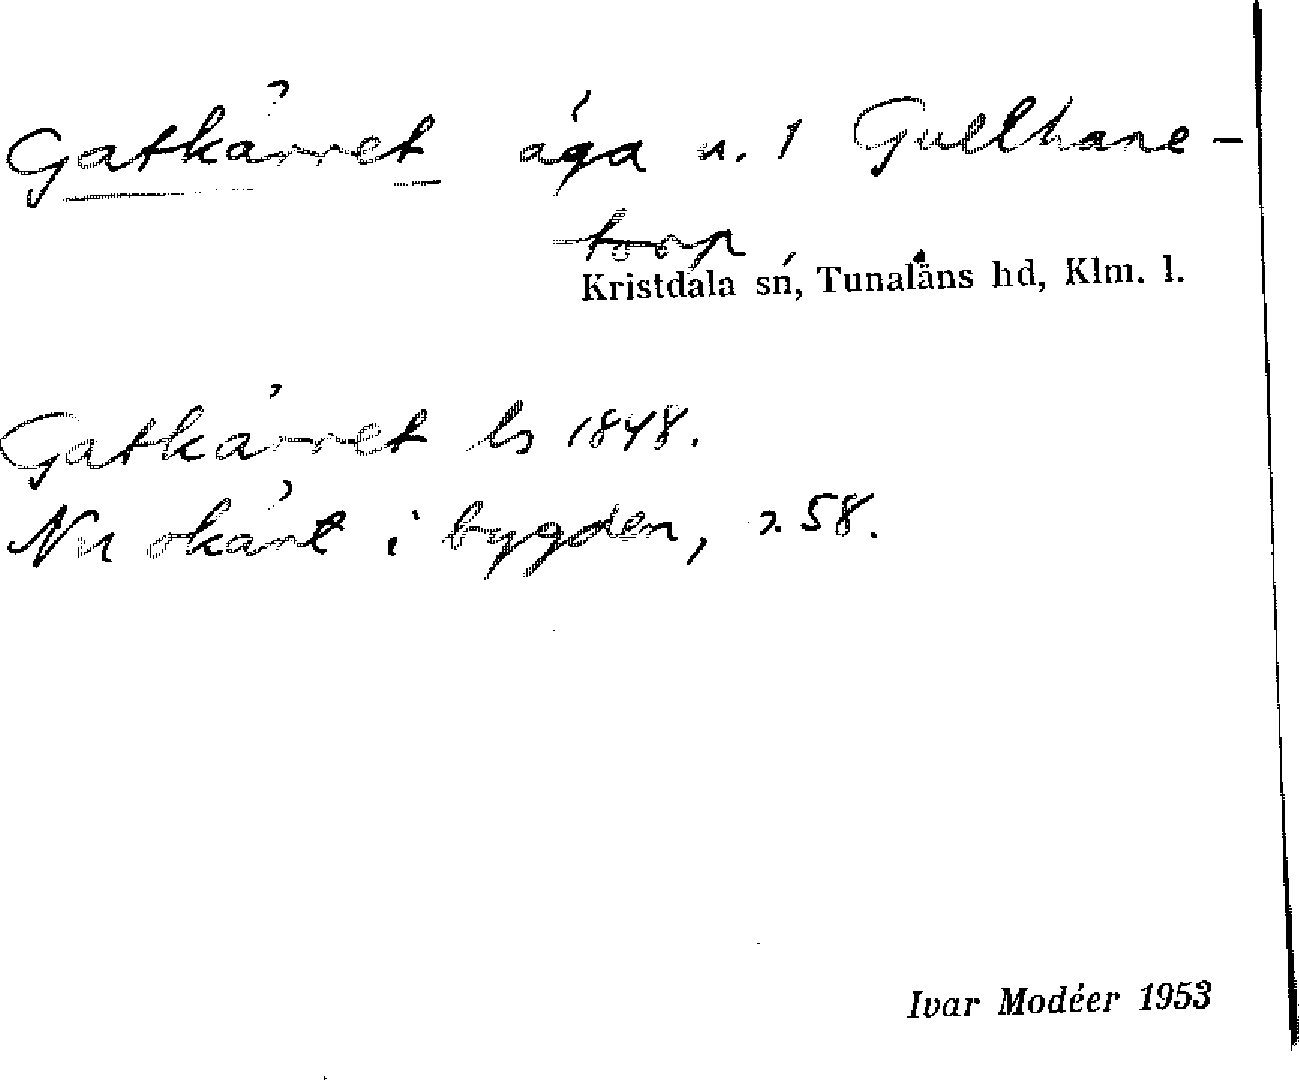 Gatkärret äga n. 1 Gullhane-
torp
Kristdala sn, Tunaläns hd, Klm. l.
Gatkärret ls 1848.
Nu okänt i bygden, s. 58.
Ivar Modéer 1953